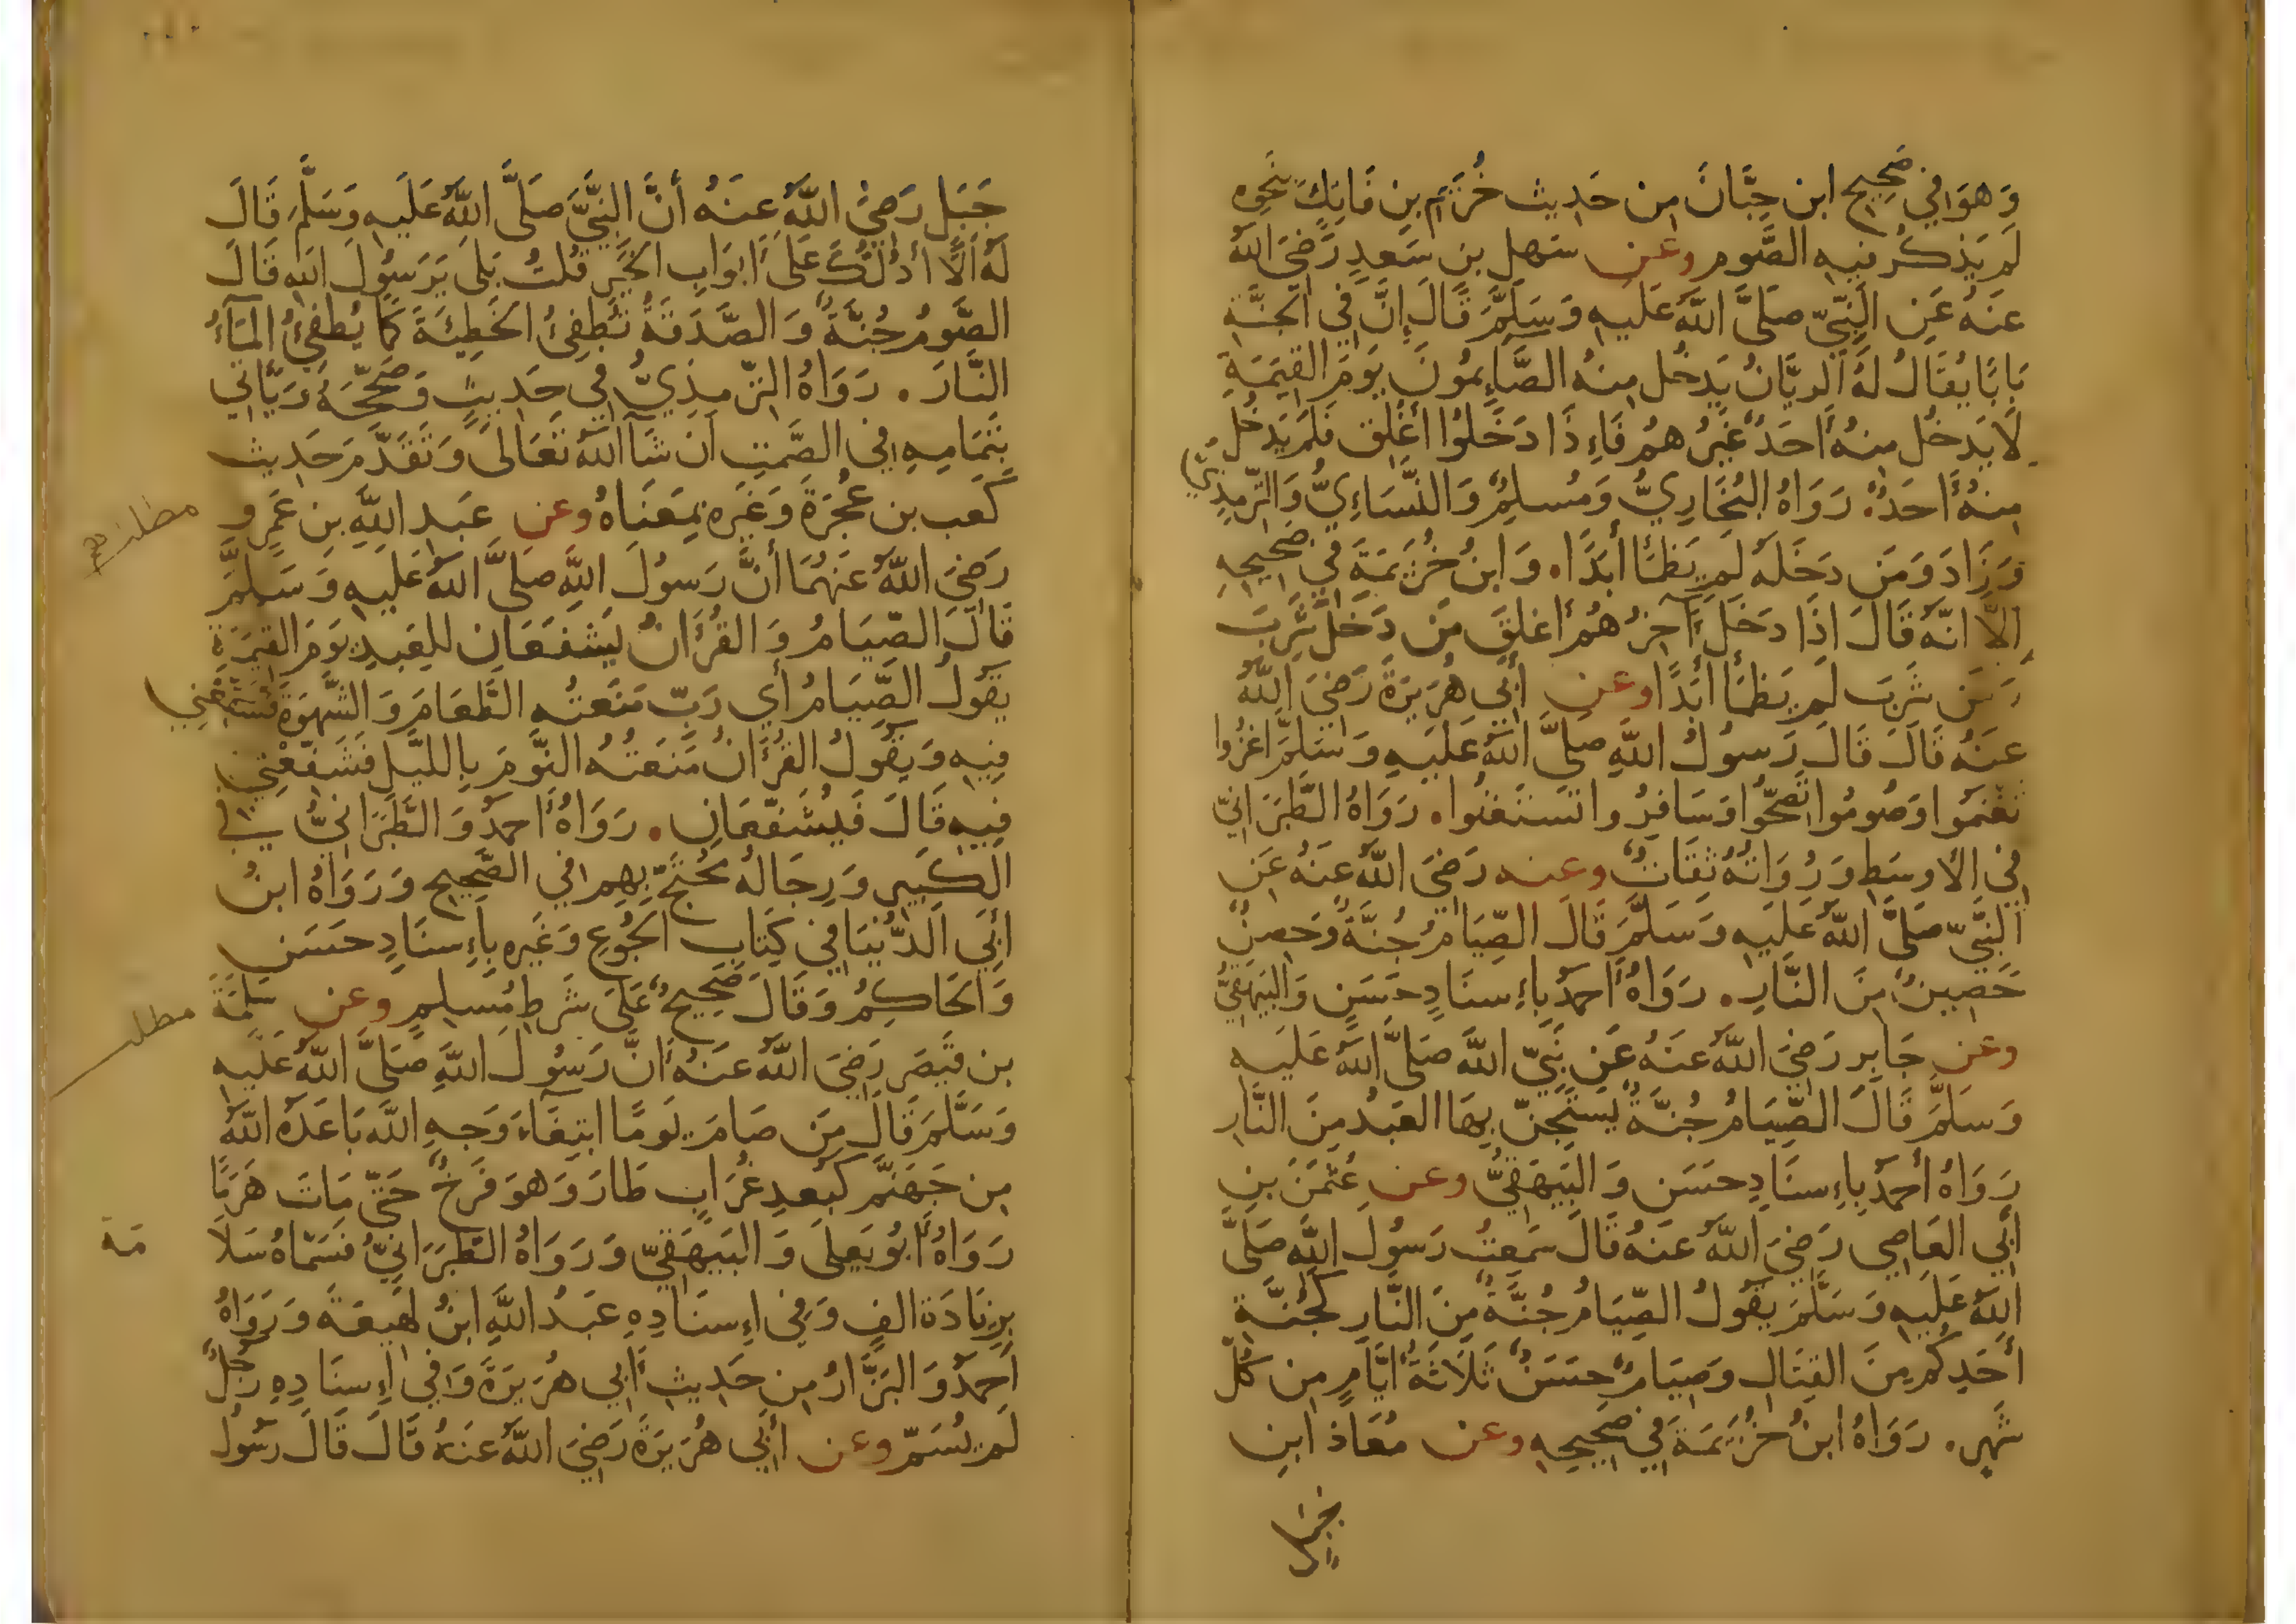 وَهوَ في صَحِيحِ ابن حِبَّانَ مِن حَدِيث خُرَيَم بِن فَاتِكٍ بنَحوِه
لَم يَذكُر فيه الصَّوم وعَن سَهل بِن سَعدٍ رَضيَ اللَّهُ
عَنهُ عَنِ النَّبِيّ صَلَّى اللَّهُ عَلَيهِ وَسَلَّمَ قَالَ إنَّ فِي الجَنَّةِ
بَابًا يُقَالُ لَهُ الرَيَّانُ يَدخُل مِنهُ الصَّاءِمُونَ يَومَ القِيَمَةِ
لَا يَدخُل مِنهُ أَحَدٌ غَيرُ هُم فَاءِذَا دَخَلُوا أُغلِق فَلَم يَدخُل
مِنهُ أَحَدٌ. رَوَاهُ البُخَارِيُّ وَمُسلِمٌ وَالنَّسَاءِيُّ وَالتِّرمِذِيّ
وَزَادَ وَمَن دَخَلَه لَم يَظمَأ أَبَدًا. وَابنُ خُزَيمَةَ في صَحِيحِهِ
الّا انّه قَالَ اذَا دَخَلَ آخِرُ هُم أغلِقَ مَن دَخَلَ شَرِبَ
وَمَن شَرِبَ لَم يَظمَأ أَبَدًا وعن أَبِي هُرَيرَةَ رَضيَ اللَّهُ
عَنهُ قَالَ قَالَ رَسولُ اللَّهِ صلَّى اللَّهُ عَلَيهِ وَسَلَّمَ اغزُوا
تَغنَموا وَصُومُوا تَصحّوا وَسَافِرُ وا تَستَغنُوا. رَوَاهُ الطَّبَرَانيّ
في الأوسَطِ وَرُوَاتُهُ ثِقَاتٌ وعنه رَضيَ اللَّهُ عَنهُ عَنِ
النَّبِيّ صَلَّى اللَّهُ عَلَيهِ وَسَلَّمَ قَالَ الصِّيَامُ جُنَّةٌ وَحِصنٌ
حَصِينٌ مِنَ النَّارِ. رَوَاهُ أَحمَدُ بِاءِسنَادٍ حَسَنٍ وَالبَيهَقِيُّ
وعن جَابِرٍ رَضيَ اللَّهُ عَنهُ عَن نَبِيّ اللَّهِ صَلَّى اللَّهُ عَلَيهِ
وَسَلَّمَ قَالَ الصِّيَامُ جُنَّةٌ يَستَجِنّ بِهَا العَبدُ مِنَ النَّارِ
رَوَاهُ أَحمَدُ بِاءِسنَادِ حَسَن وَالبَيهَقِيُّ وعن عُثمَنَ بنِ
أَبِي العَاصِي رَضيَ اللَّهُ عَنهُ قَالَ سَمِعتُ رَسُولَ اللَّهِ صَلَّى
اللَّهُ عَلَيهِ وَسَلَّمَ يَقُولُ الصِّيَامُ جُنَّةٌ مِنَ النَّارِ كَجُنَّةِ
أَحَدِكُم مِنَ القِتَالِ وَصِيَامٌ حَسَنٌ ثَلَاثَةُ أيَّامٍ مِن كُلّ
شَهرٍ. رَوَاهُ ابنُ خُزَيمَةَ في صَحِيحِهِ وعن مُعَاذ ابنِ
جَبَل
جَبَلٍ رَضيَ اللَّهُ عَنهُ أَنَّ النَّبِيَّ صَلَّى اللَّهُ عَلَيهِ وَسَلَّمَ قَالَ
لَهُ أَلَا أَدُلُّكَ عَلَى أَبوَابِ الخَيرِ قُلتُ بَلَى يَرَسُولَ اللهِ قَالَ
الصَّومُ جُنَّةٌ وَالصَّدَقَةُ تُطفِئُ الخَطِيئَةَ كَمَا يُطفِئُ المَآءُ
النَّارَ. رَوَاهُ التِّرمِذِيُّ فِي حَدِيثٍ وَصَحّحَهُ وَيَأتي
بِتَمَامِهِ في الصَّمتِ ان شَآ اللَّهُ تَعَالَى وَتَقَدَّمَ حَدِيث
كَعب بن عُجرَةَ وَغَيرِه بِمَعنَاهُ وعن عَبد اللَّهِ بن عَمرٍ و
رَضيَ اللَّهُ عَنهُمَا أَنَّ رَسُولَ اللَّهِ صَلَّى اللَّهُ عَلَيهِ وَسَلَّمَ
قَالَ الصِّيَامُ وَالقُرأَانُ يَشفَعَانِ لِلعَبدِ يَومَ القِيَمَةِ
يَقُولُ الصِّيَامُ أَي رَبّ مَنَعتُه الطَّعَامَ وَالشَّهوَةَ فَشَفّعنِي
فِيهِ وَيَقُولُ القُرأَانُ مَنَعتُه النَّومَ بِالليَلِ فَشَفّعْنِي
فِيهِ قَالَ فَيُشَفَّعَانِ. رَوَاهُ أَحمَدُ وَالطَّبَرَانِيُّ في
الكَبِيرِ وَرِجَالُهُ مُحتَجّ بِهِم في الصَّحِيحِ وَرَوَاهُ ابنُ
أَبِي الدُّنيَا في كِتَابِ الجُوعِ وَغَيرِه بِاءِسنَادٍ حَسَنٍ
وَالحَاكِمُ وَقَالَ صَحِيحٌ عَلَى شَرطِ مُسلِمٍ وعن سَلَمَةَ
بن قَيصَر رَضيَ اللَّهُ عَنهُ أَنَّ رَسُولَ اللَّهِ صَلَّى اللَّهُ عَلَيهِ
وَسَلَّمَ قَالَ مَن صَامَ يَومًا ابتِغَاءَ وَجهِ اللَّهِ بَاعَدَه اللَّهُ
مِن جَهَنَّم كَبُعدِ غُرَابٍ طَارَ وَهوَ فَرخٌ حَتَّى مَاتَ هَرَمًا
رَوَاهُ أَبُو يَعلَى وَالبَيهَقِيّ وَرَوَاهُ الطَّبَرَانيُّ فَسَمّاهُ سَلَا
مَة
بِزيَادَةِ الفٍ وَفي اءِسنَادِهِ عَبدُ اللَّهِ ابنُ لَهِيعَةَ وَرَوَاهُ
أَحمَدُ وَالبَزَّارُ مِن حَدِيثِ أَبِي هُرَيرَةَ وَفي اءِسنَادِهِ رَجُلٌ
لَم يُسَمّ وعن أَبِي هُرَيرَةَ رَضيَ اللَّهُ عَنهُ قَالَ قَالَ رَسُولُ
مطلب